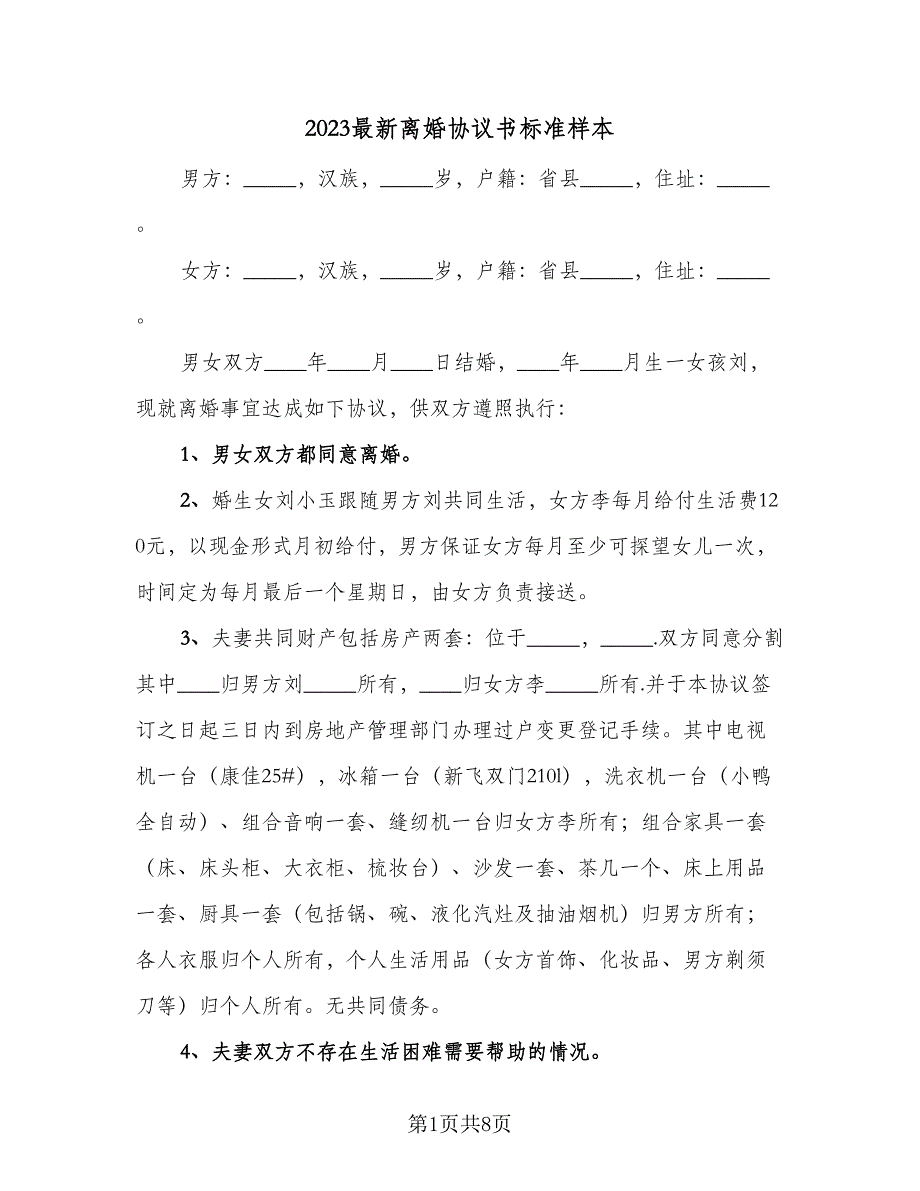 2023最新离婚协议书标准样本
男方：_____，汉族，_____岁，户籍：省县_____，住址：_____
。
女方：_____，汉族，_____岁，户籍：省县_____，住址：_____
。
男女双方____年____月____日结婚，____年____月生一女孩刘，
现就离婚事宜达成如下协议，供双方遵照执行：
1、男女双方都同意离婚。
2、婚生女刘小玉跟随男方刘共同生活，女方李每月给付生活费12
0元，以现金形式月初给付，男方保证女方每月至少可探望女儿一次，
时间定为每月最后一个星期日，由女方负责接送。
3、夫妻共同财产包括房产两套：位于_____，_____.双方同意分割
其中____归男方刘_____所有，____归女方李_____所有.并于本协议签
订之日起三日内到房地产管理部门办理过户变更登记手续。其中电视
机一台（康佳25#），冰箱一台（新飞双门210l），洗衣机一台（小鸭
全自动）、组合音响一套、缝纫机一台归女方李所有；组合家具一套
（床、床头柜、大衣柜、梳妆台）、沙发一套、茶几一个、床上用品
一套、厨具一套（包括锅、碗、液化汽灶及抽油烟机）归男方所有；
各人衣服归个人所有，个人生活用品（女方首饰、化妆品、男方剃须
刀等）归个人所有。无共同债务。
4、夫妻双方不存在生活困难需要帮助的情况。
第1页共8页